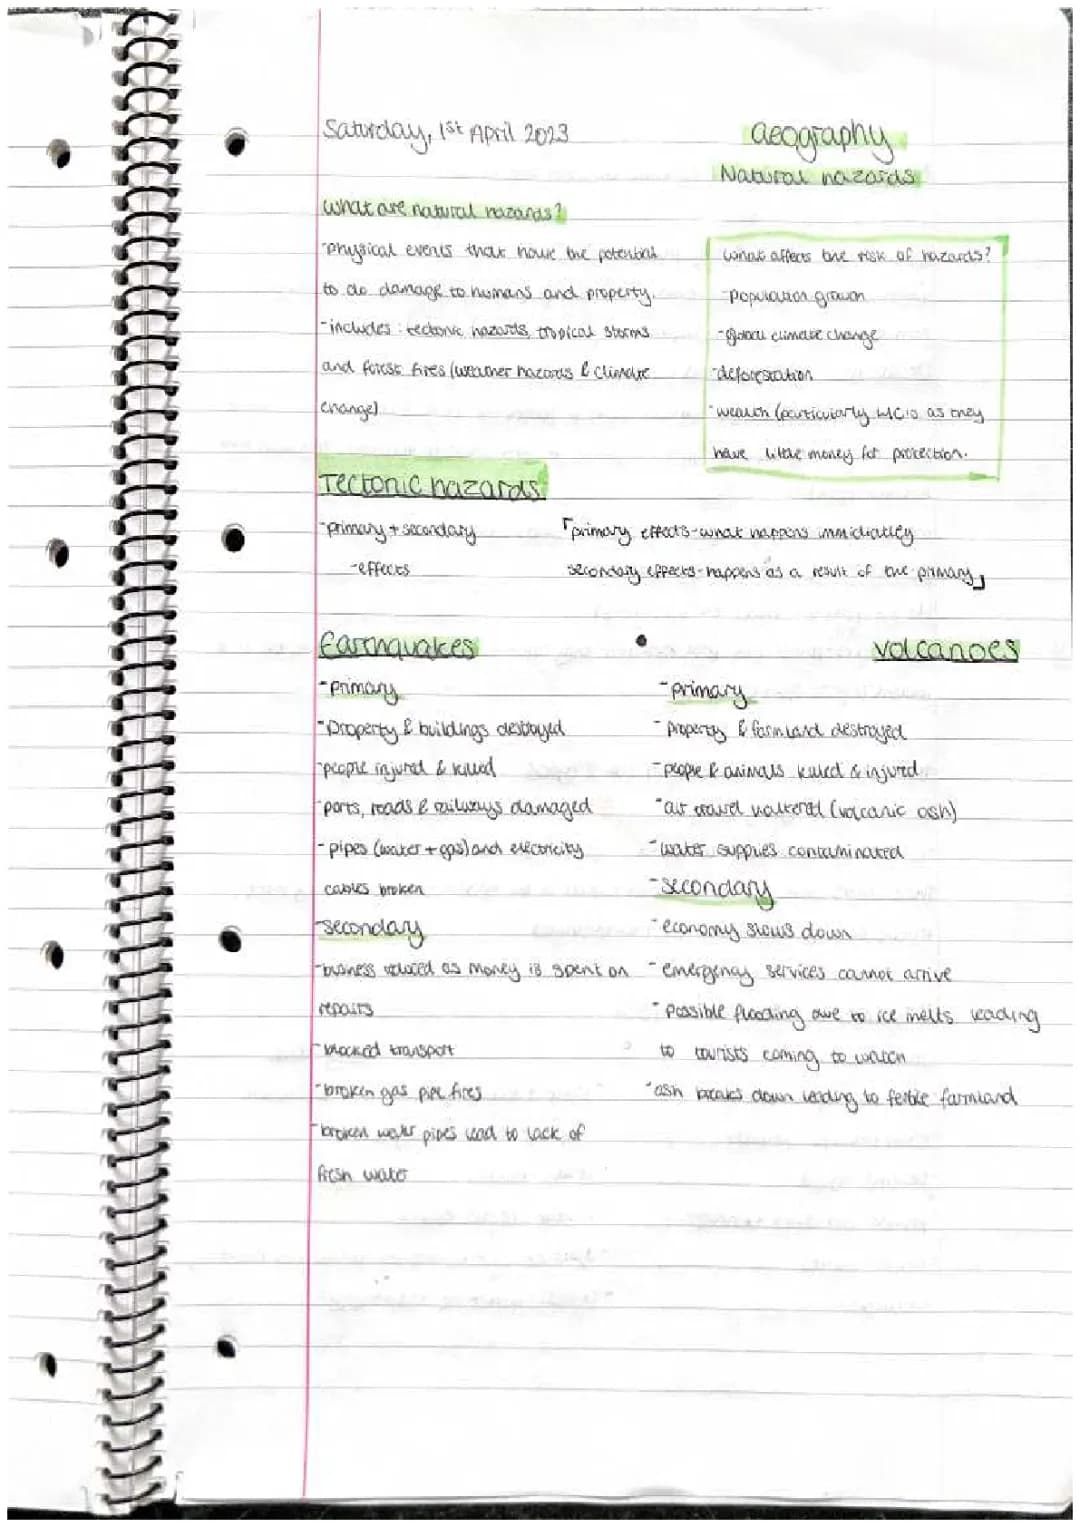 Saturday, 1st April 2023
Geography
Natural hazards
what are natural hazards?
-physical events that have the potential
to do damage to humans and property.
-includes: tectonic hazards, tropical storms
and forest fires (weather hazards & climate
change)
what affects the risk of hazards?
-population growth
-global climate change
-deforestation
-wealth (particularly LIC's as they
have little money for protection.
Tectonic hazards
-primary + secondary
-effects
primary effects-what happens immidiatley
secondary effects-happens as a result of the primary
Earthquakes
-primary
-Property & buildings destroyed
-people injured & killed
-ports, roads & railways damaged
-pipes (water + gas) and electricity
cables broken
-secondary
-business reduced as money is spent on
repairs
-blocked transport
-broken gas pipe fires
-broken water pipes lead to lack of
fresh water
volcanoes
-primary
-Property & farmland destroyed
-people & animals killed & injured
-air travel haltered (volcanic ash)
-water supplies contaminated
-secondary
-economy slows down
-emergency services cannot arrive
-Possible flooding due to ice melts leading
to tourists coming to watch
-ash breaks down leading to fertile farmland